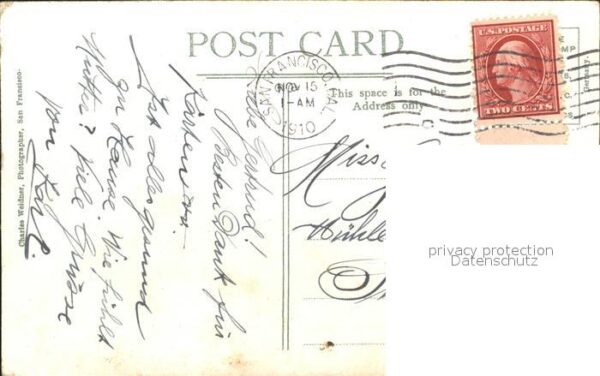 POST CARD
U.S. POSTAGE
TWO CENTS
SAN FRANCISCO, CAL.
NOV 15
1-AM
1910
This space is for the
Address only
Charles Weidner, Photographer, San Francisco
Germany.
Liebe Gertrud!
Besten Dank für
Karten
Ist alles gesund
zu Hause. Wie fühlt
Mutter? Viele Grüsse
von Karl.
Miss
Mühle
privacy protection
Datenschutz